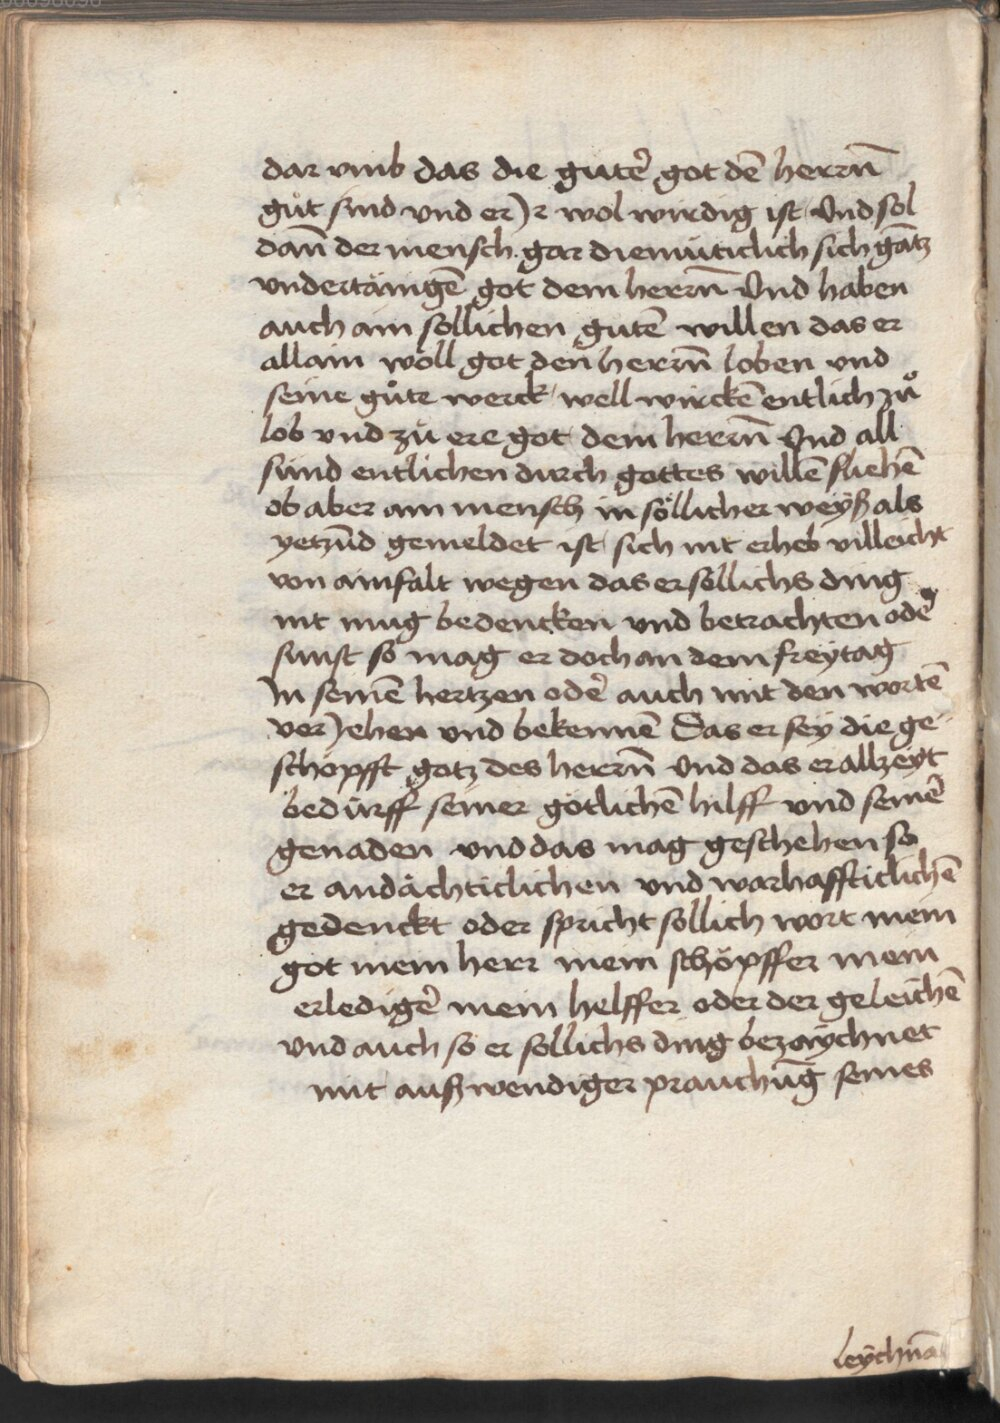 dar vmb das die gutẽ got dẽ herrn̄
gůt sind vnd er Jr wol wirdig ist Vnd sol
dan̄ der mensch gar diemüticlich sich gātz
vndertänigē got dem herrn̄ Vnd haben
auch ain sollichen gutē willen das er
allain wöll got den herrn̄ loben vnd
seine gůte werck well wirckē entlich zů
lob vnd zů ere got dem herrn̄ Vnd all
sünd entlichen durch gottes willē fliehē
ob aber ain mensch in söllicher weyß als
yetzūd gemeldet ist sich nit erheb villeicht
von ainfalt wegen das er söllichs ding
nit mug bedencken vnd betrachten odeꝰ
sunst so mag er doch an dem freytag
In seinē hertzen odeꝰ auch mit den wortē
verJehen vnd bekennē Das er sey die ge-
schöpfft gotz des herrn̄ Vnd das er allzeyt
bedürff seiner götlichē hilff vnd seineꝰ
genaden vnd das mag geschehen so
er andächticlichen vnd warhaffticlichē
gedenckt oder spricht sollich wort mein
got mein herr mein schöpffer mein
erledigeꝰ mein helffer oder der geleichē
vnd auch so er sollichs ding bezaychnet
mit außwendiger prauchūg seines
leychnā